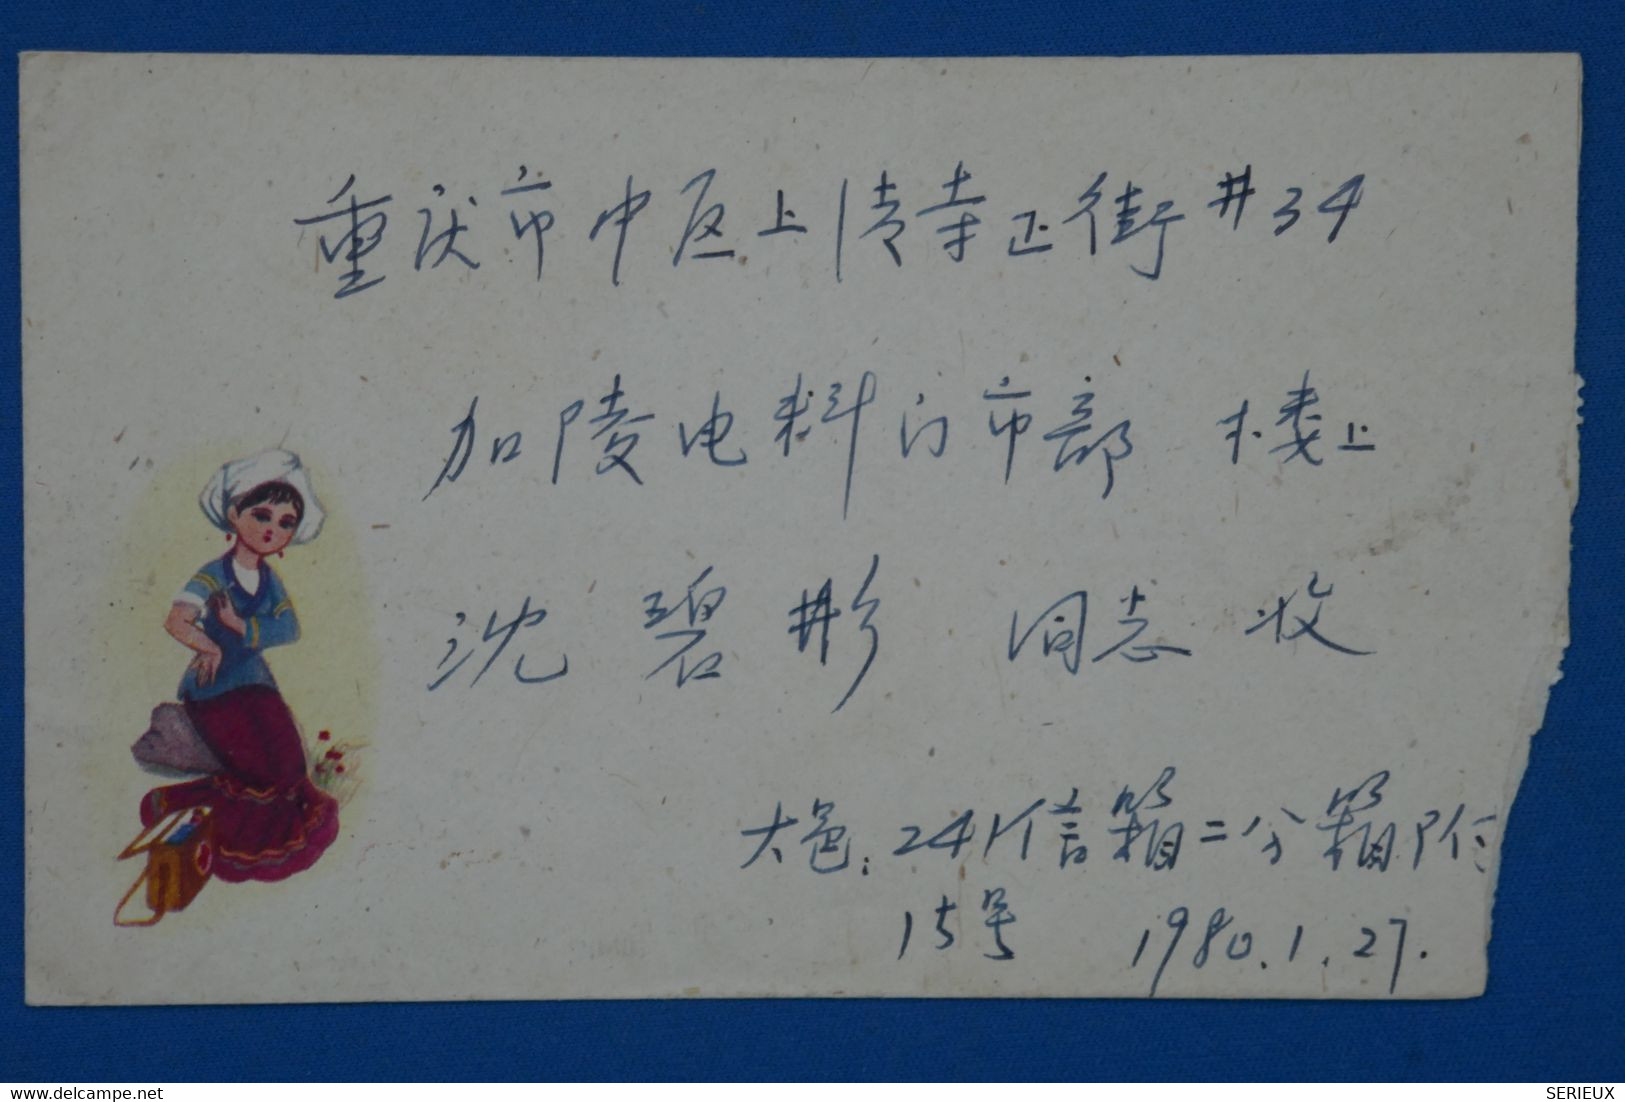 重庆市中区上清寺正街#34
加陵电料门市部 楼上
沈碧彤 同志收
大邑:24信箱二分箱附
15号 1980.1.27.
delcampe.net
SERIEUX